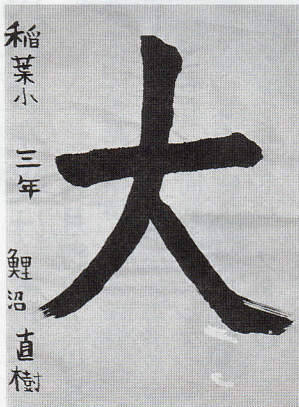 大
稲葉小 三年 鯉沼 直樹